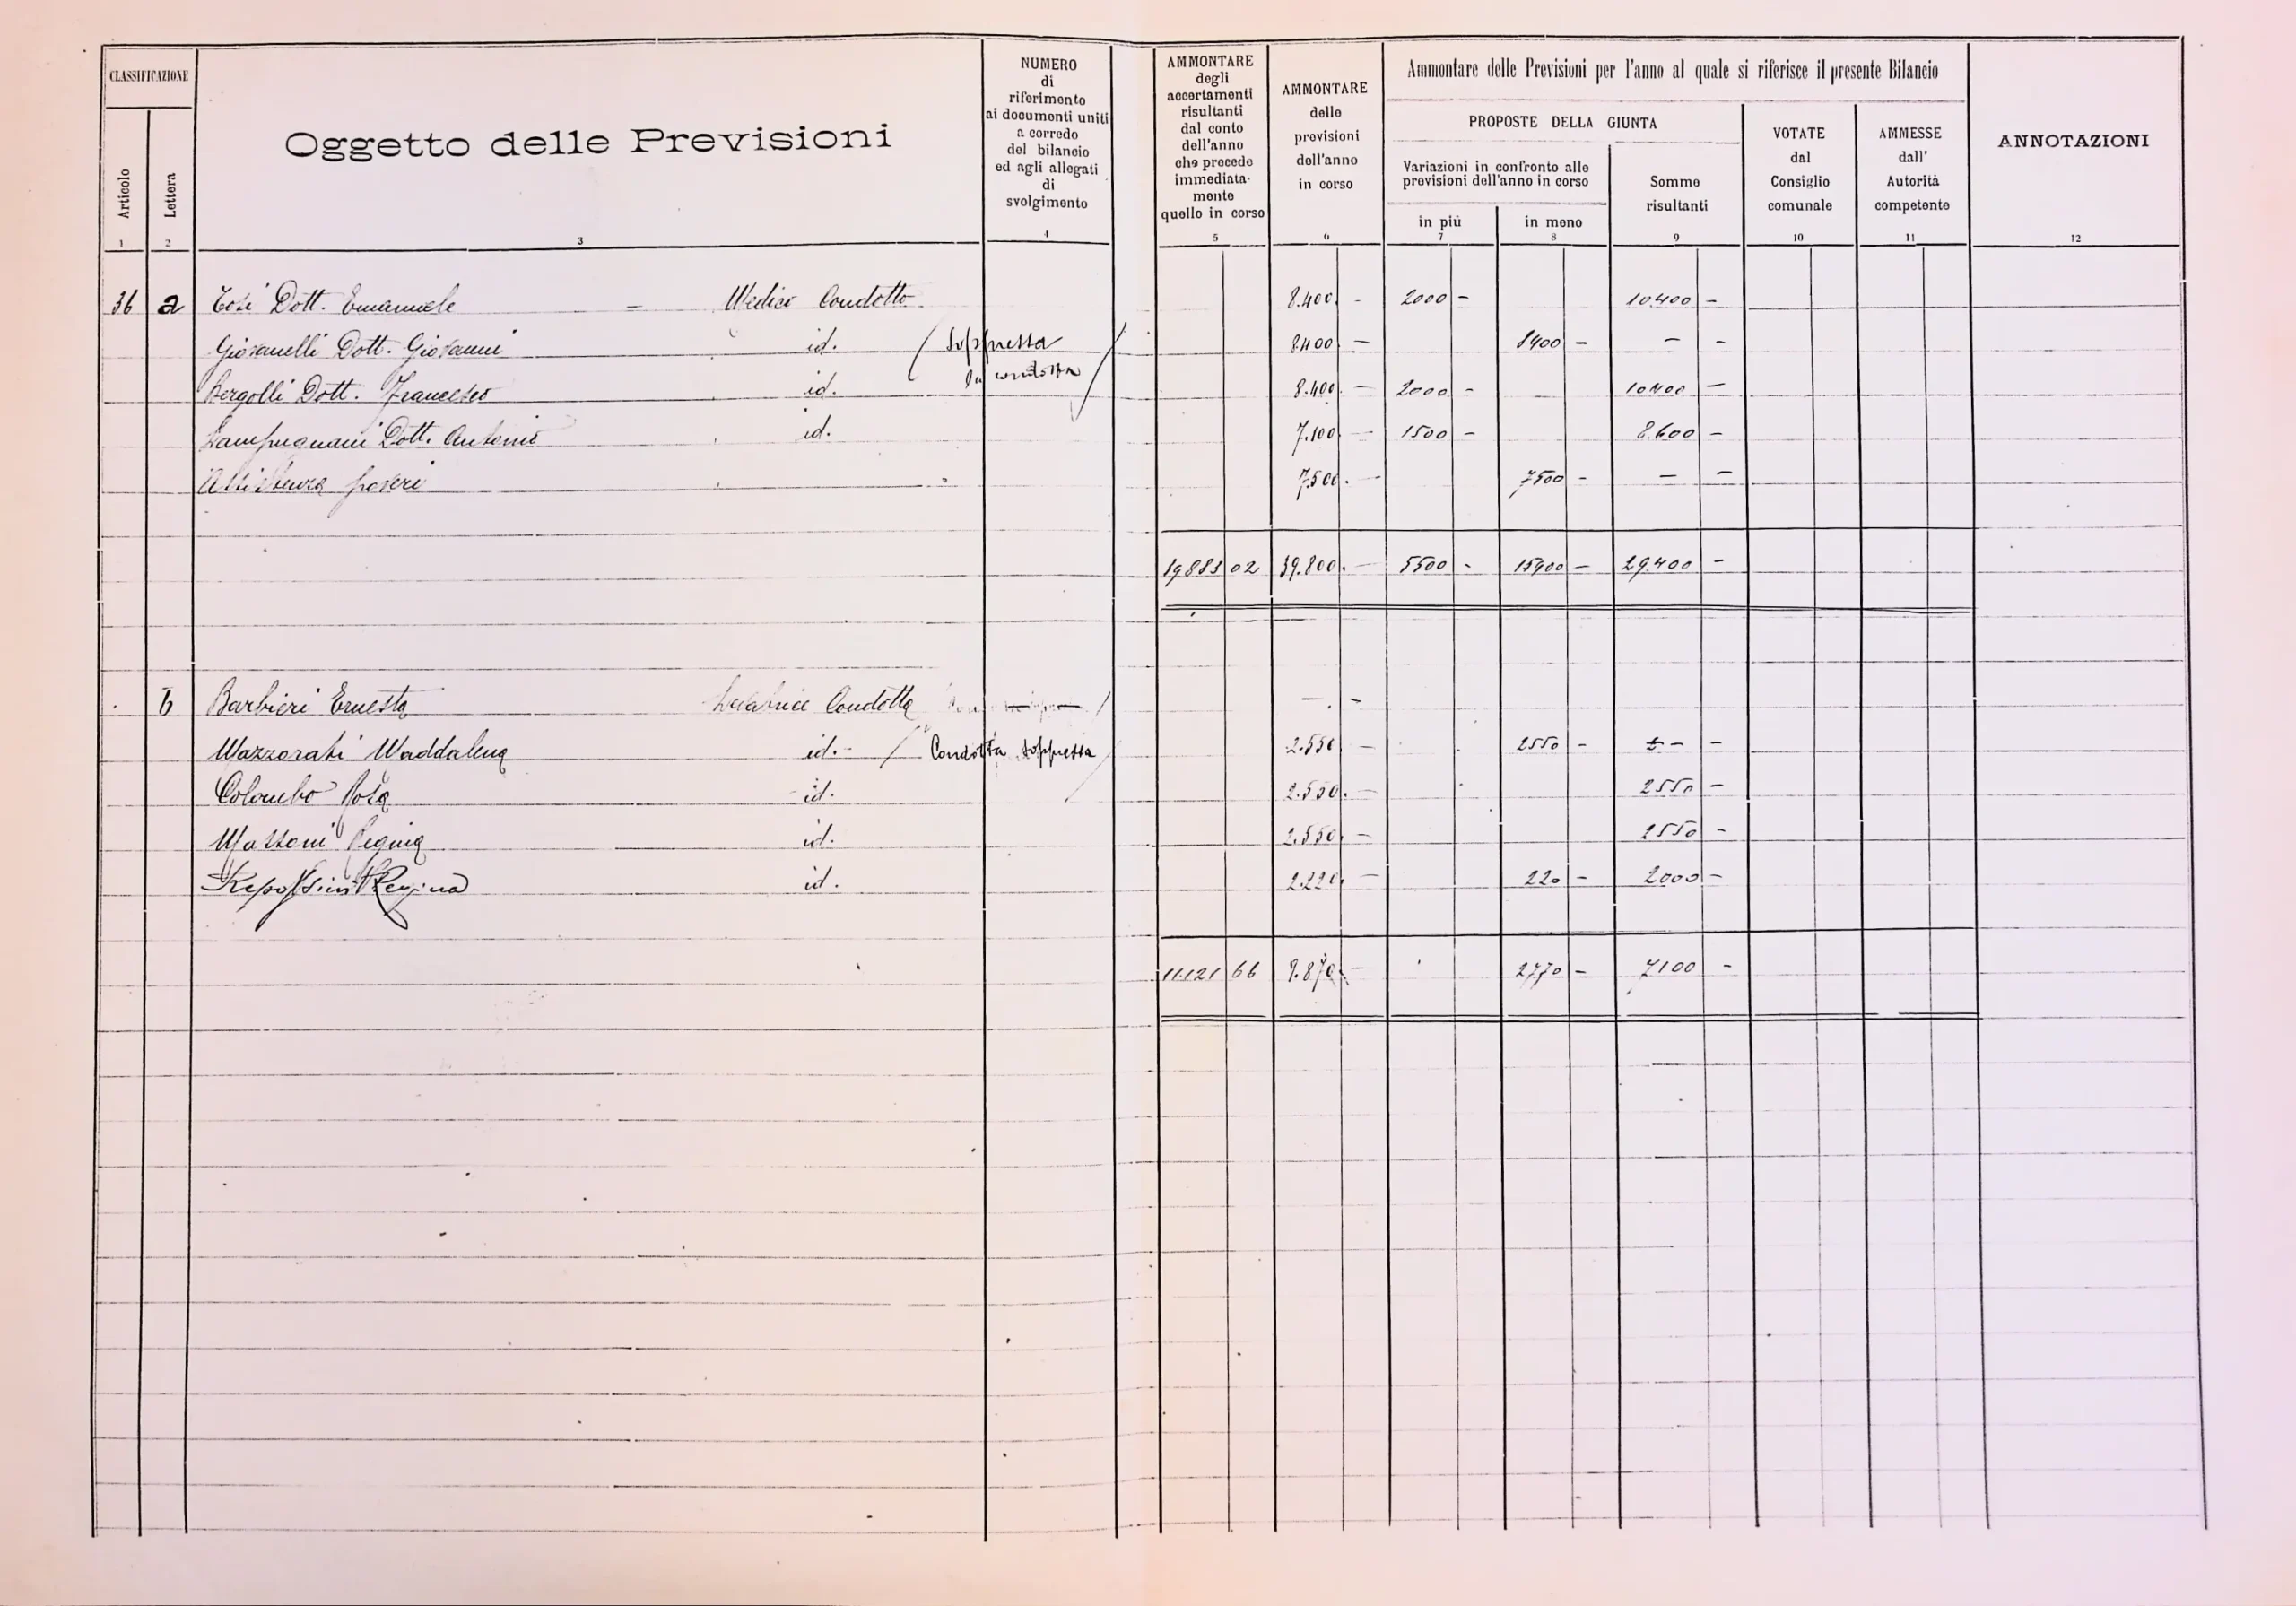 CLASSIFICAZIONE
Articolo
Lettera
Oggetto delle Previsioni
NUMERO
di
riferimento
ai documenti uniti
a corredo
del bilancio
ed agli allegati
di
svolgimento
AMMONTARE
degli
accertamenti
risultanti
dal conto
dell'anno
che precede
immediata-
mente
quello in corso
AMMONTARE
delle
previsioni
dell'anno
in corso
Ammontare delle Previsioni per l'anno al quale si riferisce il presente Bilancio
PROPOSTE DELLA GIUNTA
Variazioni in confronto alle
previsioni dell'anno in corso
in più
in meno
Somme
risultanti
VOTATE
dal
Consiglio
comunale
AMMESSE
dall'
Autorità
competente
ANNOTAZIONI
1 2 3 4 5 6 7 8 9 10 11 12
36 a Tosi Dott. Emanuele = Medico Condotto 8.400. - 2000 - 10.400 -
Giovanelli Dott. Giovanni id. (Soppressa 8400. - 8400 - - -
la condotta)
Bergolli Dott. Francesco id. 8.400. - 2000 - 10400 -
Lampugnani Dott. Antonio id. 7.100. - 1500 - 8.600 -
Assistenza poveri 7.500. - 7500 - - -
02 39.800. - 5500 - 15900 - 29.400 -
b Barbieri Ernesta Levatrice Condotta - -
Mazzorati Maddalena id. - (Condotta soppressa) 2.550 - 2550 - - -
Colombo Rosa id. 2.550. - 2550 -
Massoni Regina id. 2.550. - 2550 -
Repossini Regina id. 2.220. - 220 - 2000 -
11.121 66 9.870. - 2770 - 7100 -